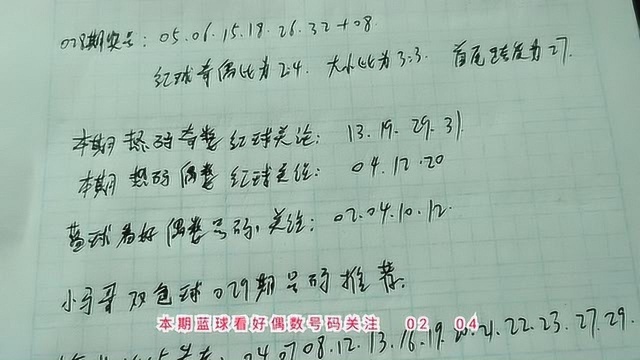 028期奖号: 05.06.15.18.26.32+08.
红球奇偶比为2:4. 大小比为3:3. 首尾跨度为27.
本期热码奇数红球关注: 13.19.29.31
本期热码偶数红球关注: 04.12.20
蓝球看好偶数号码,关注: 02.04.10.12.
小宇哥双色球029期号码推荐:
本期蓝球看好偶数号码关注 02 04
04.07.08.12.13.16.19.20.21.22.23.27.29.